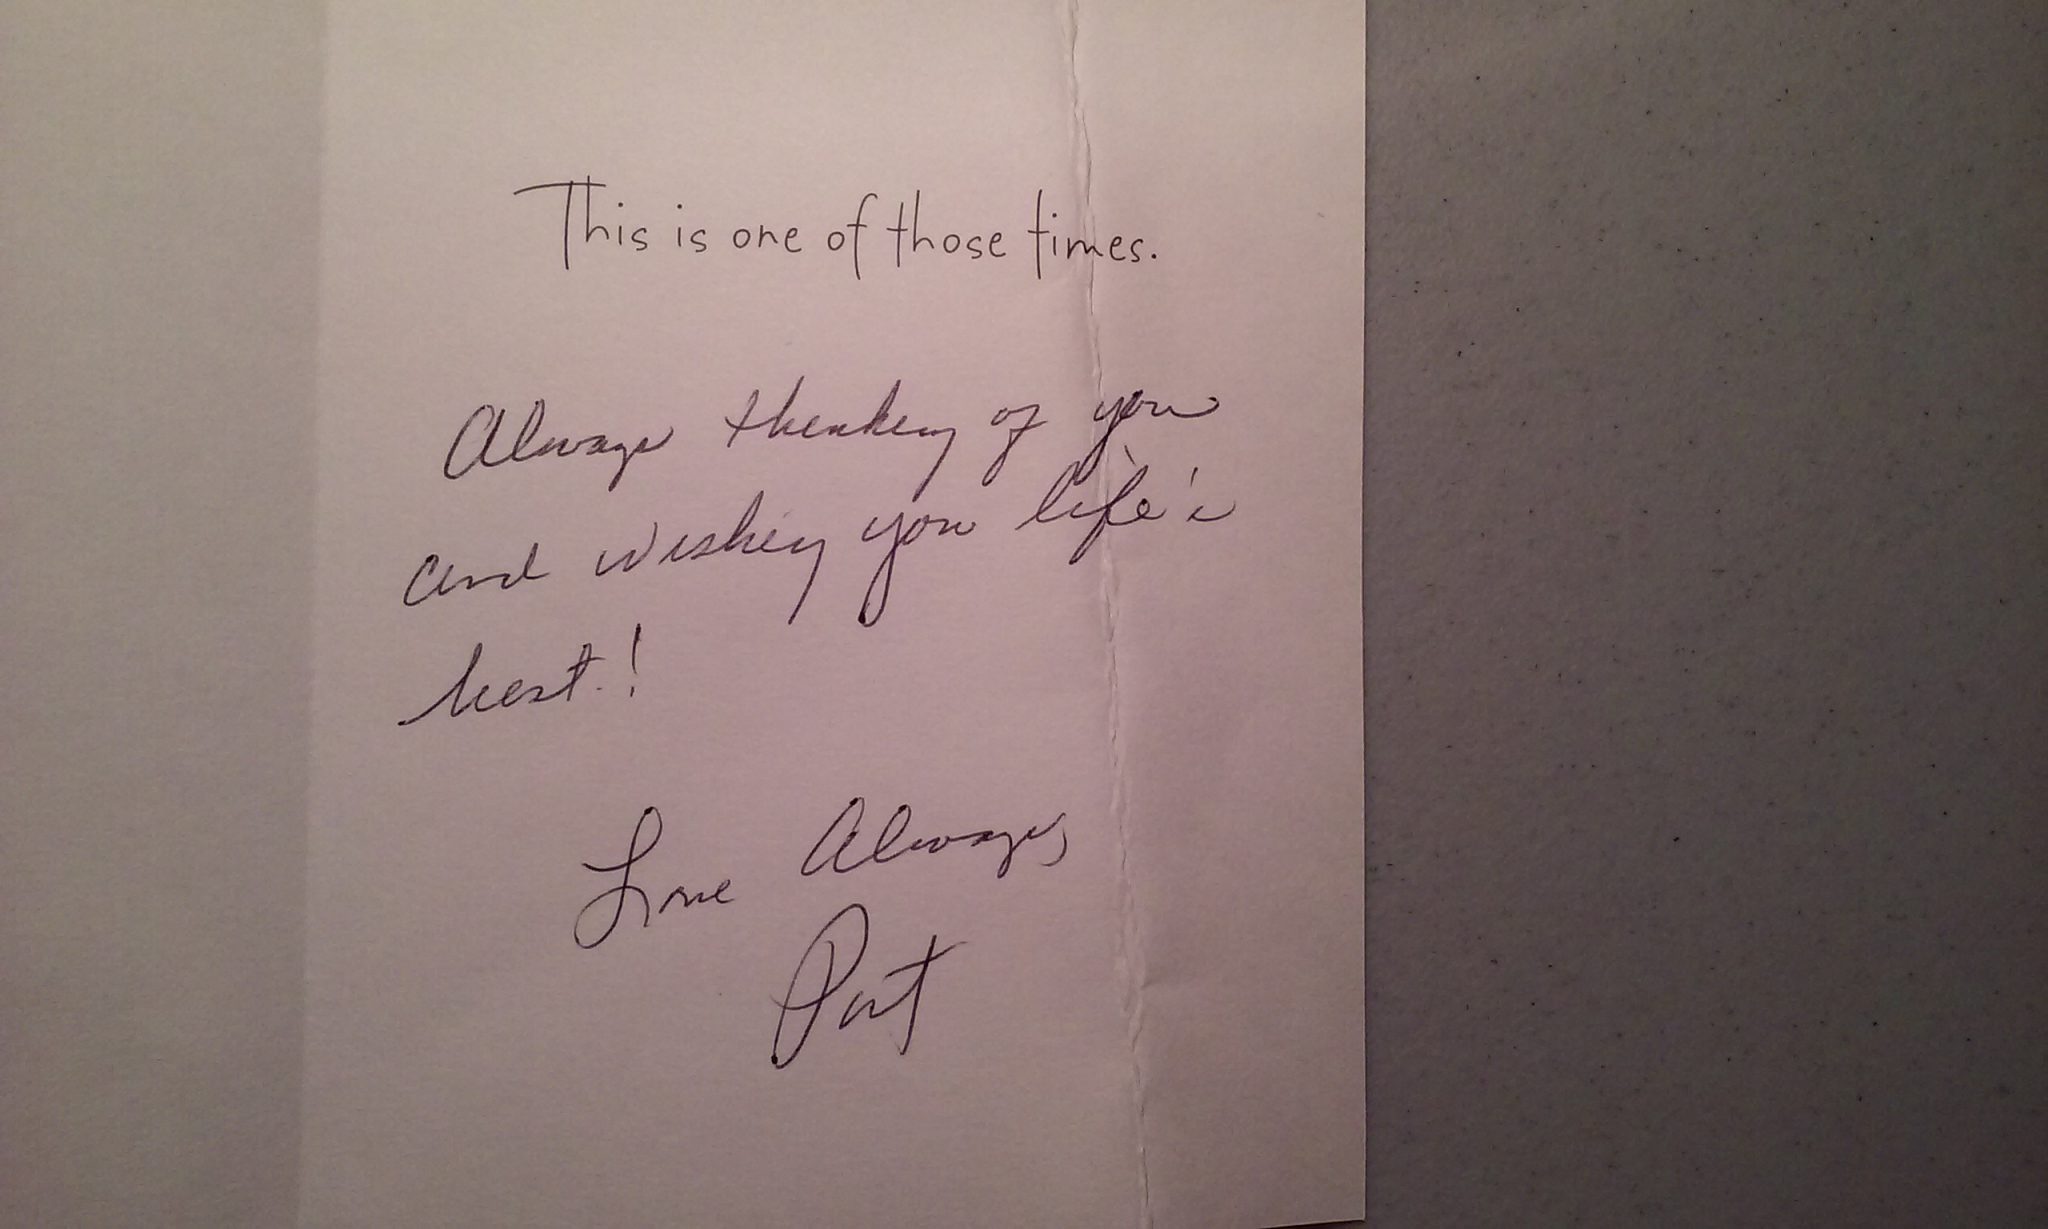 This is one of those times.
Always thinking of you
and wishing you life's
best!
Love Always,
Pat